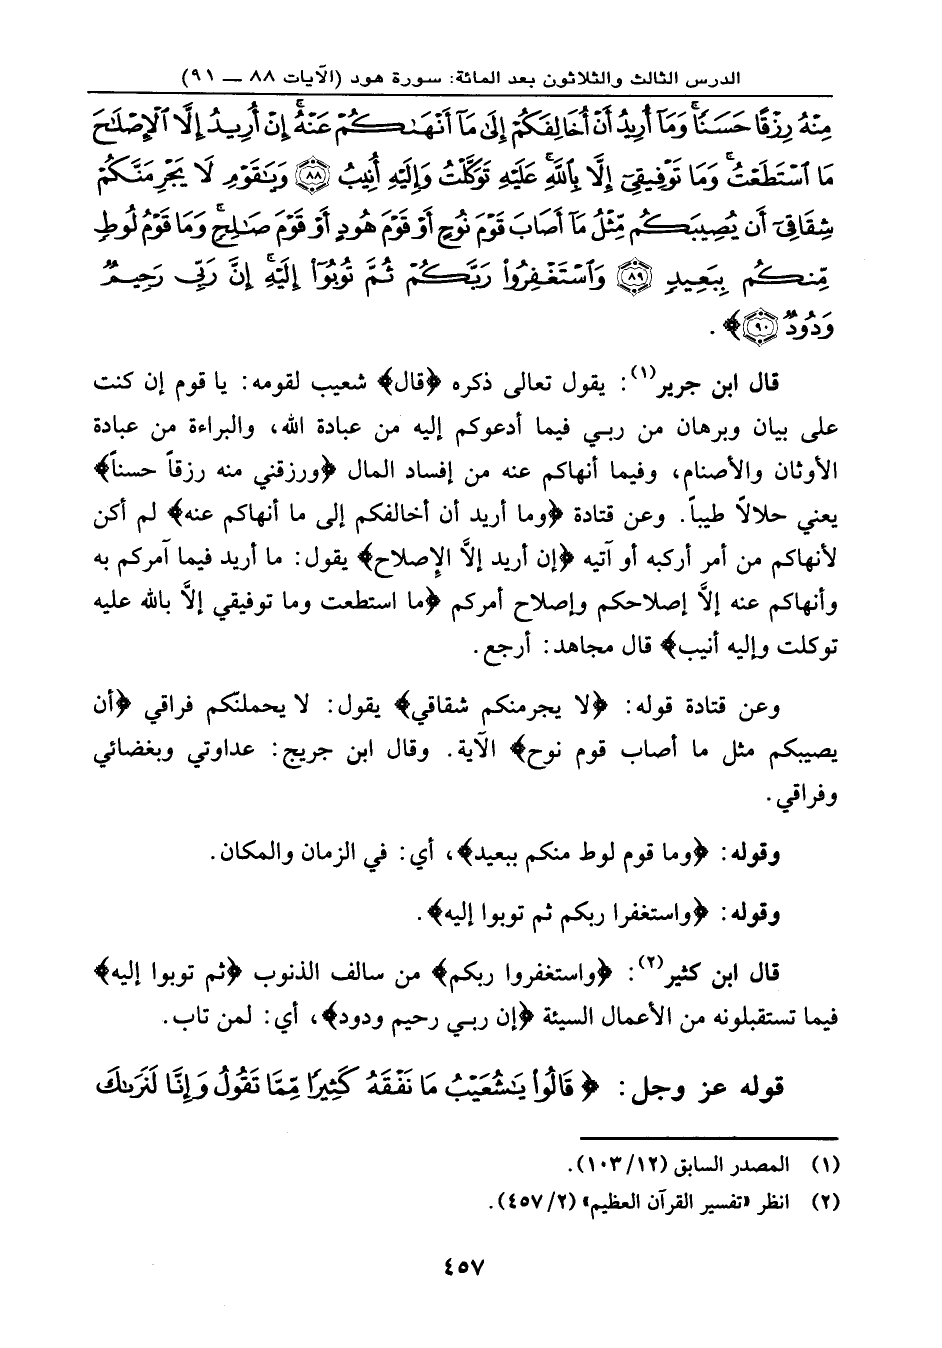 الدرس الثالث والثلاثون بعد المائة: سورة هود (الآيات ٨٨ — ٩١)
مِنْهُ رِزْقًا حَسَنًا ۚ وَمَآ أُرِيدُ أَنْ أُخَالِفَكُمْ إِلَىٰ مَآ أَنْهَىٰكُمْ عَنْهُ ۚ إِنْ أُرِيدُ إِلَّا ٱلْإِصْلَٰحَ
مَا ٱسْتَطَعْتُ ۚ وَمَا تَوْفِيقِىٓ إِلَّا بِٱللَّهِ ۚ عَلَيْهِ تَوَكَّلْتُ وَإِلَيْهِ أُنِيبُ ﴿٨٨﴾ وَيَٰقَوْمِ لَا يَجْرِمَنَّكُمْ
شِقَاقِىٓ أَن يُصِيبَكُم مِّثْلُ مَآ أَصَابَ قَوْمَ نُوحٍ أَوْ قَوْمَ هُودٍ أَوْ قَوْمَ صَٰلِحٍ ۚ وَمَا قَوْمُ لُوطٍ
مِّنكُم بِبَعِيدٍ ﴿٨٩﴾ وَٱسْتَغْفِرُوا۟ رَبَّكُمْ ثُمَّ تُوبُوٓا۟ إِلَيْهِ ۚ إِنَّ رَبِّى رَحِيمٌ
وَدُودٌ ﴿٩٠﴾﴾.
قال ابن جرير(١): يقول تعالى ذكره ﴿قال﴾ شعيب لقومه: يا قوم إن كنت
على بيان وبرهان من ربي فيما أدعوكم إليه من عبادة الله، والبراءة من عبادة
الأوثان والأصنام، وفيما أنهاكم عنه من إفساد المال ﴿ورزقني منه رزقاً حسناً﴾
يعني حلالاً طيباً. وعن قتادة ﴿وما أريد أن أخالفكم إلى ما أنهاكم عنه﴾ لم أكن
لأنهاكم من أمر أركبه أو آتيه ﴿إن أريد إلاَّ الإصلاح﴾ يقول: ما أريد فيما آمركم به
وأنهاكم عنه إلاَّ إصلاحكم وإصلاح أمركم ﴿ما استطعت وما توفيقي إلاَّ بالله عليه
توكلت وإليه أنيب﴾ قال مجاهد: أرجع.
وعن قتادة قوله: ﴿لا يجرمنكم شقاقي﴾ يقول: لا يحملنّكم فراقي ﴿أن
يصيبكم مثل ما أصاب قوم نوح﴾ الآية. وقال ابن جريج: عداوتي وبغضائي
وفراقي.
وقوله: ﴿وما قوم لوط منكم ببعيد﴾، أي: في الزمان والمكان.
وقوله: ﴿واستغفرا ربكم ثم توبوا إليه﴾.
قال ابن كثير(٢): ﴿واستغفروا ربكم﴾ من سالف الذنوب ﴿ثم توبوا إليه﴾
فيما تستقبلونه من الأعمال السيئة ﴿إن ربي رحيم ودود﴾، أي: لمن تاب.
قوله عز وجل: ﴿قَالُوا۟ يَٰشُعَيْبُ مَا نَفْقَهُ كَثِيرًا مِّمَّا تَقُولُ وَإِنَّا لَنَرَىٰكَ
(١) المصدر السابق (١٢/١٠٣).
(٢) انظر «تفسير القرآن العظيم» (٢/٤٥٧).
٤٥٧